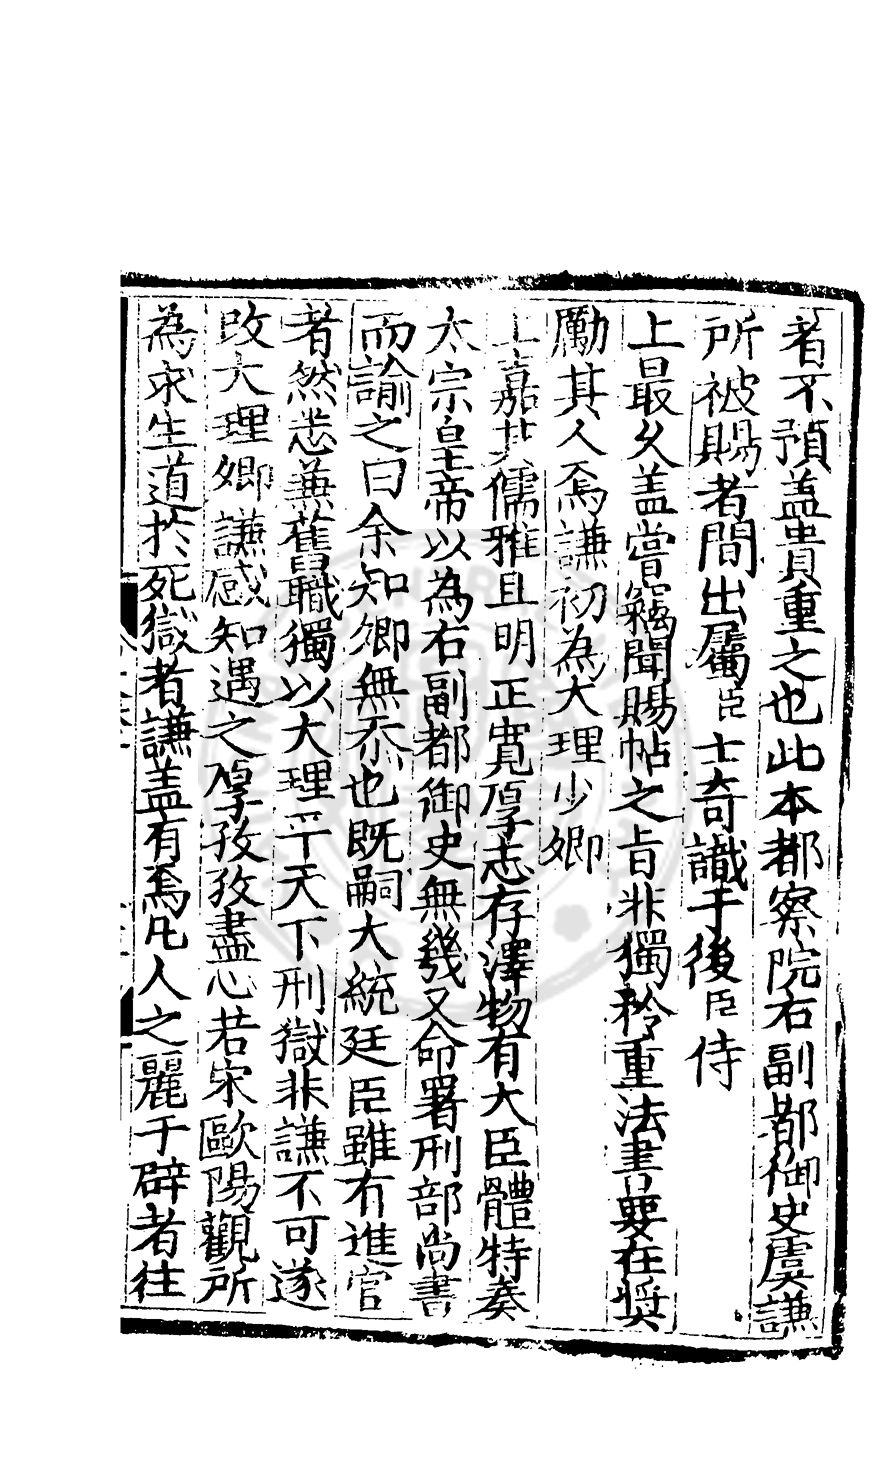 者不預盖貴重之也此本都察院右副都御史虞謙
所被賜者間出屬臣士奇識于後臣侍
上最久盖嘗竊聞賜帖之旨非獨矜重法書要在奬
勵其人焉謙初為大理少卿
上嘉其儒雅且明正寛厚志存澤物有大臣體特奏
太宗皇帝以為右副都御史無幾又命署刑部尚書
而諭之曰余知卿無忝也既嗣大統廷臣雖有進官
者然悉兼舊職獨以大理平天下刑獄非謙不可遂
改大理卿謙感知遇之厚孜孜盡心若宋歐陽觀所
為求生道於死獄者謙盖有焉凡人之麗于辟者往